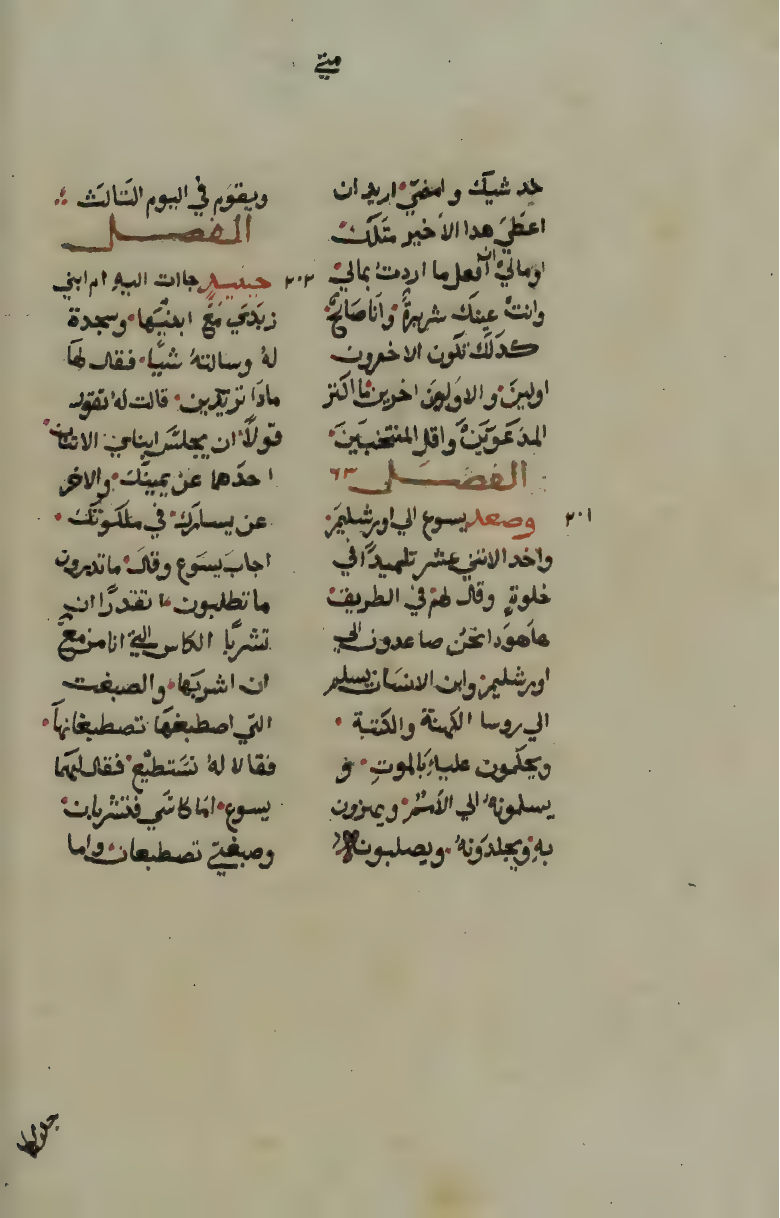 متي
خد شيك وامضي اريد ان
اعطي هدا الاخير متلك
اومالي ان افعل ما اردت بمالي
وانت عينك شريرة وانا صالح
كدلك تكون الاخرون
اولين والاولون اخرين ما اكتر
المدعوين واقل المنتخبين
الفصل ٦٣
٢٠١ وصعد يسوع الي اورشليم
واخد الاتني عشر تلميدا في
خلوة وقال لهم في الطريق
هاهودا نحن صاعدون الي
اورشليم وابن الانسان يسلم
الي روسا الكهنة والكتبة
ويحكمون عليه بالموت و
يسلمونه الي الامم ويهزون
به ويجلدونه ويصلبونه
ويقوم في اليوم التالت
الفصل
٢٠٢ حينيد جاات اليه ام ابني
زبدي مع ابنيها وسجدة
له وسالته شيا فقال لها
مادا تريدين قالت له تقول
قولا ان يجلس ابناي الاتنان
احدهما عن يمينك والاخر
عن يسارك في ملكوتك
اجاب يسوع وقال ما تدرون
ما تطلبون اتقدرا ان
تشربا الكاس التي انا مزمع
ان اشربها والصبغت
التي اصطبغها تصطبغانها
فقالا له نستطيع فقال لهما
يسوع اما كاسي فتشربان
وصبغتي تصطبغان واما